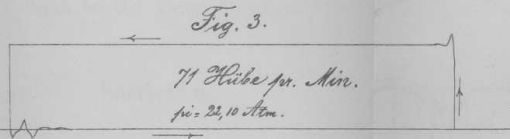 Fig. 3.
71 Hübe pr. Min.
pi = 22,10 Atm.